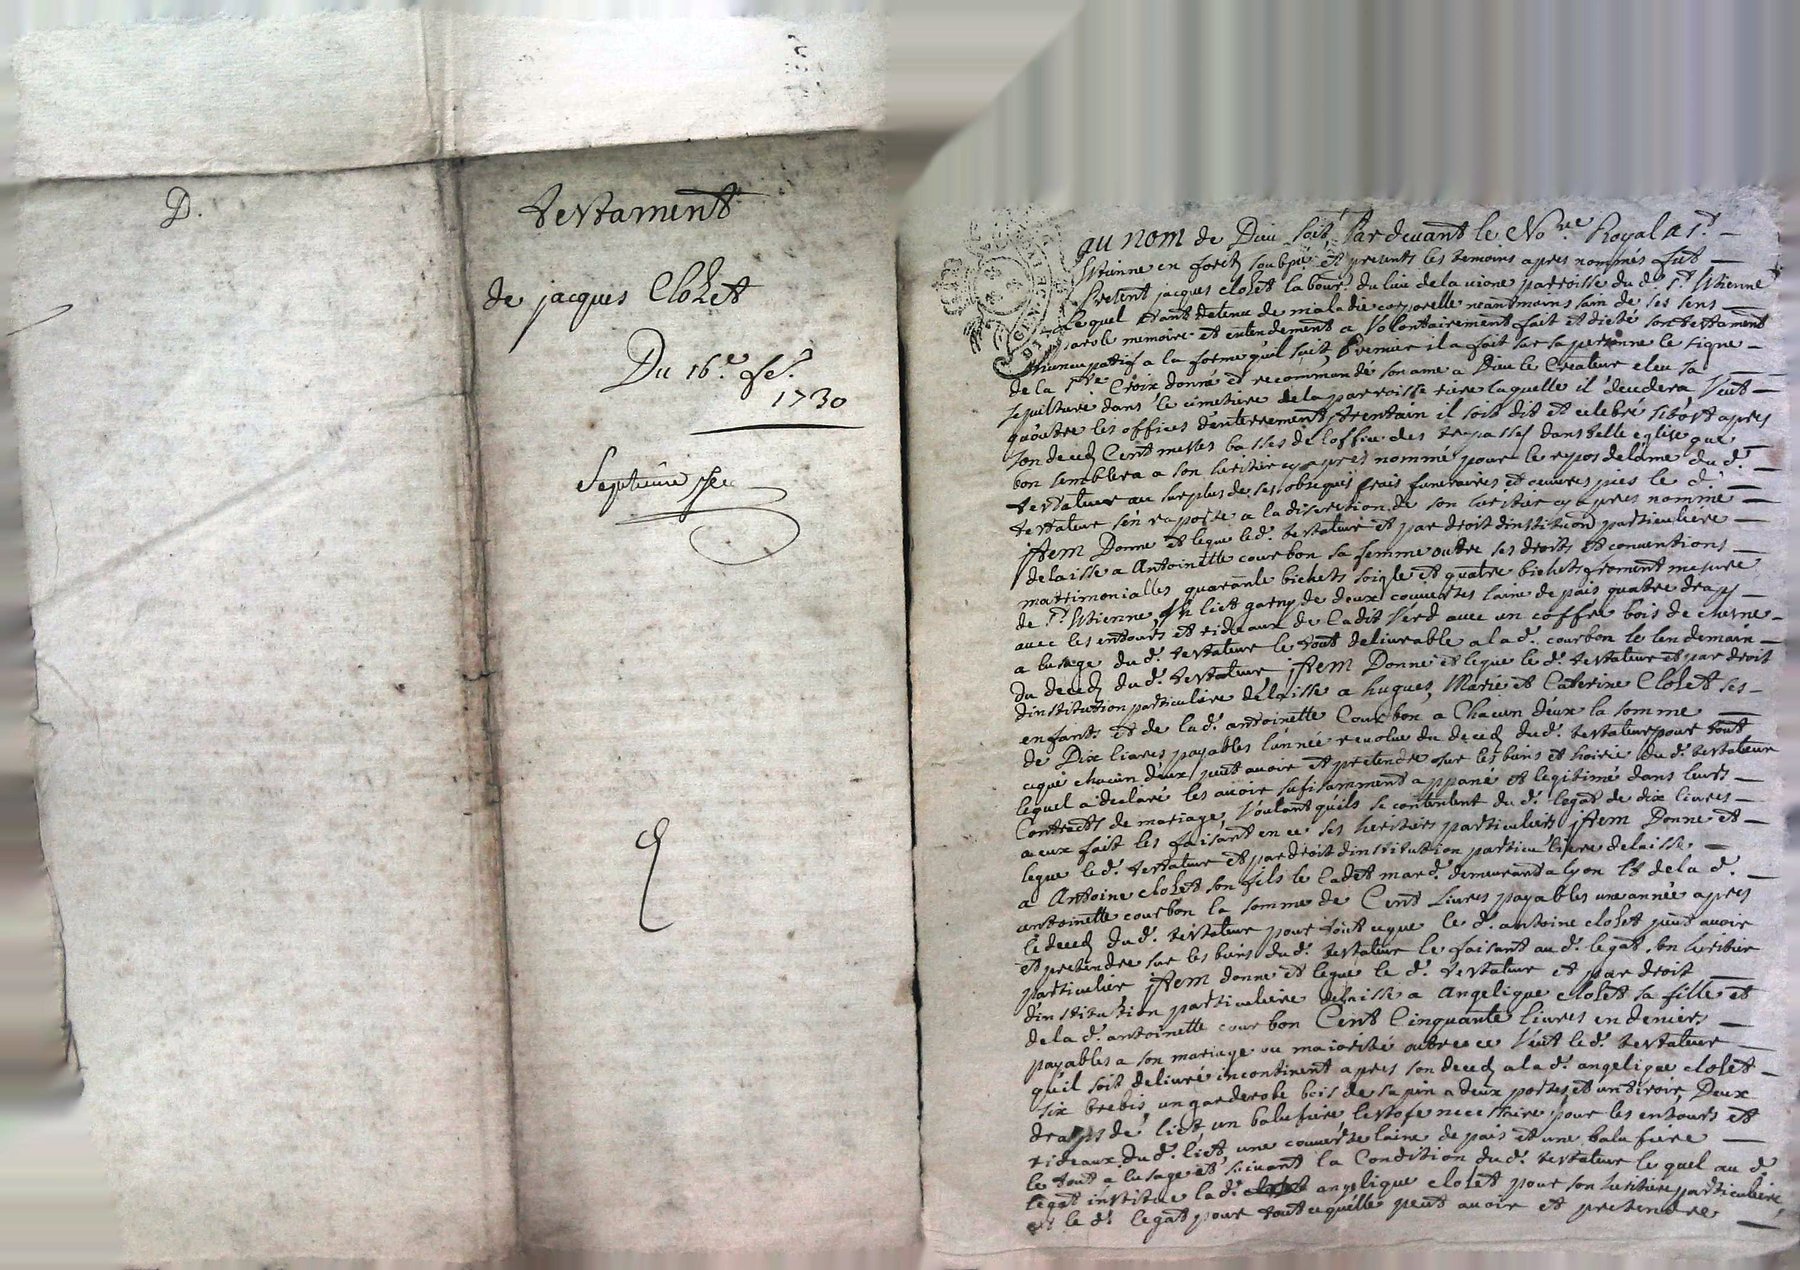 D.
testament
de jacques Clozet
Du 16.e fe.
1730
Septieme
au nom de Dieu soit, Par devant le No.re Royal a S.t
Etienne en forez soubzné et presents les temoins apres nommes fut
Present jacques clozet labour. du lieu de la vione parroisse du d. S.t Etienne
Lequel etant detenu de maladie corporelle neantmoins sain de ses sens
parole memoire et entendement a Volontairement fait et dicté son testament
Nuncupatif a la forme quil suit, Premier il a fait sur sa personne le signe
de la S.te Croix donné et recommandé son ame a Dieu le Createur eleu sa
sepulture dans le cimetiere de la parroisse riere laquelle il decedera Veut
qu'outre les offices d'enterrement, trentain il soit dit et celebré sitost apres
son deceds Cent messes basses de l'office des trepassés dans telle eglise que
bon semblera a son heritier cy apres nommé pour le repos de l'ame du d.
testateur au surplus de ses obseques frais funeraires et oeuvres pies le d.
testateur s'en raporte a la discretion de son heritier cy apres nommé
jtem Donne et legue le d. testateur et par droit d'institution particuliere
delaisse a Antoinette courbon sa femme outre ses droits et conventions
matrimonialles quarante bichets soigle et quatre bichets froment mesure
de S.t Etienne, un lict garny de deux couvertes laine de païs quatre draps
avec les entours et rideaux de Cadit Verd avec un coffre bois de chesne
a lusage du d. testateur le tout delivrable a la d. courbon le lendemain
du deceds du d. testateur jtem Donne et legue le d. testateur et par droit
d'institution particuliere delaisse a hugues, Marie et Caterine Clozet ses
enfants et de la d. antoinette Courbon a Chacun deux la somme
de Dix livres payables lannée revolue du deceds du d. testateur pour tout
ce que chacun d'eux peut avoir et pretendre sur les biens et hoirie du d. testateur
lequel a declaré les avoir sufisamment appané et legitimé dans leurs
Contracts de mariage, Voulant qu'ils se contentent du d. legat de dix livres
a eux fait les faisant en ce ses heritiers particuliers jtem Donne et
legue le d. testateur et par droit d'institution particuliere delaisse
a Antoine clozet son fils le Cadet mar.d demeurant a lyon et de la d.
antoinette courbon la somme de Cent Livres payables une année apres
le deceds du d. testateur pour tout ce que le d. antoine clozet peut avoir
et pretendre sur les biens du d. testateur le faisant au d. legat son heritier
particulier jtem donne et legue le d. testateur et par droit
d'institution particuliere delaisse a angelique clozet sa fille et
de la d. antoinette courbon Cent Cinquante livres en deniers
payables a son mariage ou majorité outre ce Veut le d. testateur
qu'il soit delivré incontinent apres son deceds a la d. angelique clozet
six brebis, un garderobe bois de sapin a deux portes et un tiroir, Deux
draps de lict un balufiere lestofe necessaire pour les entours et
rideaux du d. lict, une couverte laine de païs et une balufiere
le tout a lusage et suivant la Condition du d. testateur lequel au d.
legat institue la d. angelique clozet pour son heritiere particuliere
et le d. legat pour tout ce qu'elle peut avoir et pretendre